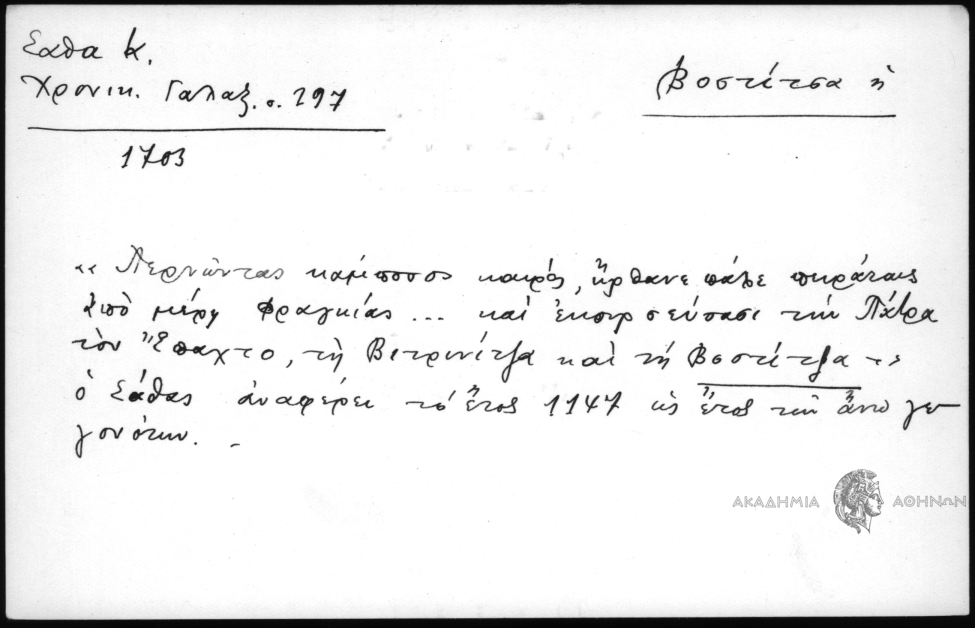 Σάθα Κ.
Χρονικ. Γαλαξ. σ. 197
Βοστίτσα ἡ
1703
«Περνῶντας κάμποσος καιρός, ἤρθανε πάλε πιράταις
ἀπὸ μέρη Φραγκίας ... καὶ ἐκουρσεύσασι τὴν Πάτρα
τὸν Ἔπαχτο, τὴ Βιτρινίτζα καὶ τὴ Βοστίτζα»
ὁ Σάθας ἀναφέρει τὸ ἔτος 1147 ὡς ἔτος τῶν ἄνω γε
γονότων. -
ΑΚΑΔΗΜΙΑ ΑΘΗΝΩΝ